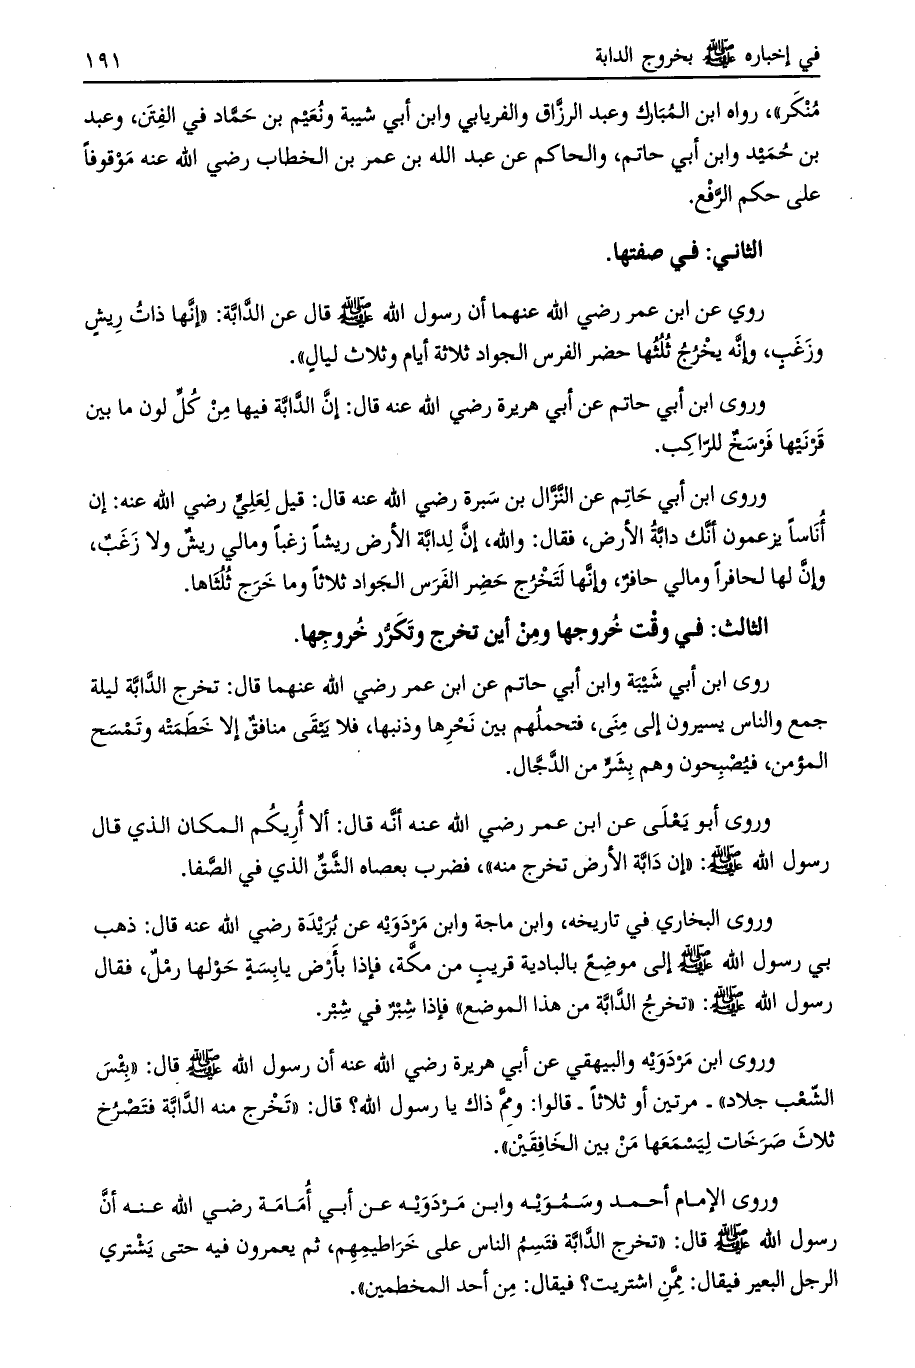 في إخباره ﷺ بخروج الدابة ١٩١
مُنْكَر»، رواه ابن المُبَارك وعبد الرزَّاق والفريابي وابن أبي شيبة ونُعَيْم بن حَمَّاد في الفِتَن، وعبد
بن حُمَيْد وابن أبي حاتم، والحاكم عن عبد الله بن عمر بن الخطاب رضي الله عنه مَوْقوفاً
على حكم الرَّفْع.
الثاني: في صفتها.
روي عن ابن عمر رضي الله عنهما أن رسول الله ﷺ قال عن الدَّابَّة: «إنَّها ذاتُ رِيشٍ
وزَغَبٍ، وإنَّه يخْرُجُ ثُلُثُها حضر الفرس الجواد ثلاثة أيام وثلاث ليالٍ».
وروى ابن أبي حاتم عن أبي هريرة رضي الله عنه قال: إنَّ الدَّابَّة فيها مِنْ كُلِّ لون ما بين
قَرْنَيْها فَرْسَخٌ للرّاكِب.
وروى ابن أبي حَاتِم عن النَّزَّال بن سَبرة رضي الله عنه قال: قيل لِعَلِيٍّ رضي الله عنه: إن
أُنَاساً يزعمون أنَّك دابَّةُ الأرض، فقال: والله، إنَّ لِدابَّة الأرض ريشاً زغباً ومالي ريشٌ ولا زَغَبٌ،
وإنَّ لها لحافراً ومالي حافرٌ، وإنَّها لَتَخْرُج حَضِر الفَرَس الجَواد ثلاثاً وما خَرَج ثُلُثَاها.
الثالث: في وقْت خُروجها ومِنْ أين تخرج وتَكَرُّر خُروجِها.
روى ابن أبي شَيْبَة وابن أبي حاتم عن ابن عمر رضي الله عنهما قال: تخرج الدَّابَّة ليلة
جمع والناس يسيرون إلى مِنَى، فتحملُهم بين نَحْرِها وذنبها، فلا يَبْقَى منافقٌ إلا خَطَمَتْه وتَمْسَح
المؤمن، فيُصْبِحون وهم بِشَرٍّ من الدَّجَّال.
وروى أبو يَعْلَى عن ابن عمر رضي الله عنه أنَّه قال: ألا أُرِيكُم المكان الذي قال
رسول الله ﷺ: «إن دَابَّة الأرض تخرج منه»، فضرب بعصاه الشَّقِّ الذي في الصَّفا.
وروى البخاري في تاريخه، وابن ماجة وابن مَرْدَوَيْه عن بُرَيْدَة رضي الله عنه قال: ذهب
بي رسول الله ﷺ إلى موضِعٍ بالبادية قريبٍ من مكَّة، فإذا بأَرْض يابِسَةٍ حَوْلها رملٌ، فقال
رسول الله ﷺ: «تخرجُ الدَّابَّة من هذا الموضع» فإذا شِبْرٌ في شِبْر.
وروى ابن مَرْدَوَيْه والبيهقي عن أبي هريرة رضي الله عنه أن رسول الله ﷺ قال: «بِئْسَ
الشّعْب جلاد» ـ مرتين أو ثلاثاً ـ قالوا: وممَّ ذاك يا رسول الله؟ قال: «تَخْرج منه الدَّابَّة فتَصْرُخ
ثلاثَ صَرَخَات لِيَسْمَعَها مَنْ بين الخَافِقَيْن».
وروى الإمام أحمد وسَمُوَيْه وابن مَرْدَوَيْه عن أبي أُمَامَة رضي الله عنه أنَّ
رسول الله ﷺ قال: «تخرج الدَّابَّة فتَسِمُ الناس على خَرَاطيمِهِم، ثم يعمرون فيه حتى يَشْتري
الرجل البعير فيقال: مِمَّنِ اشتريت؟ فيقال: مِن أحد المخطمين».